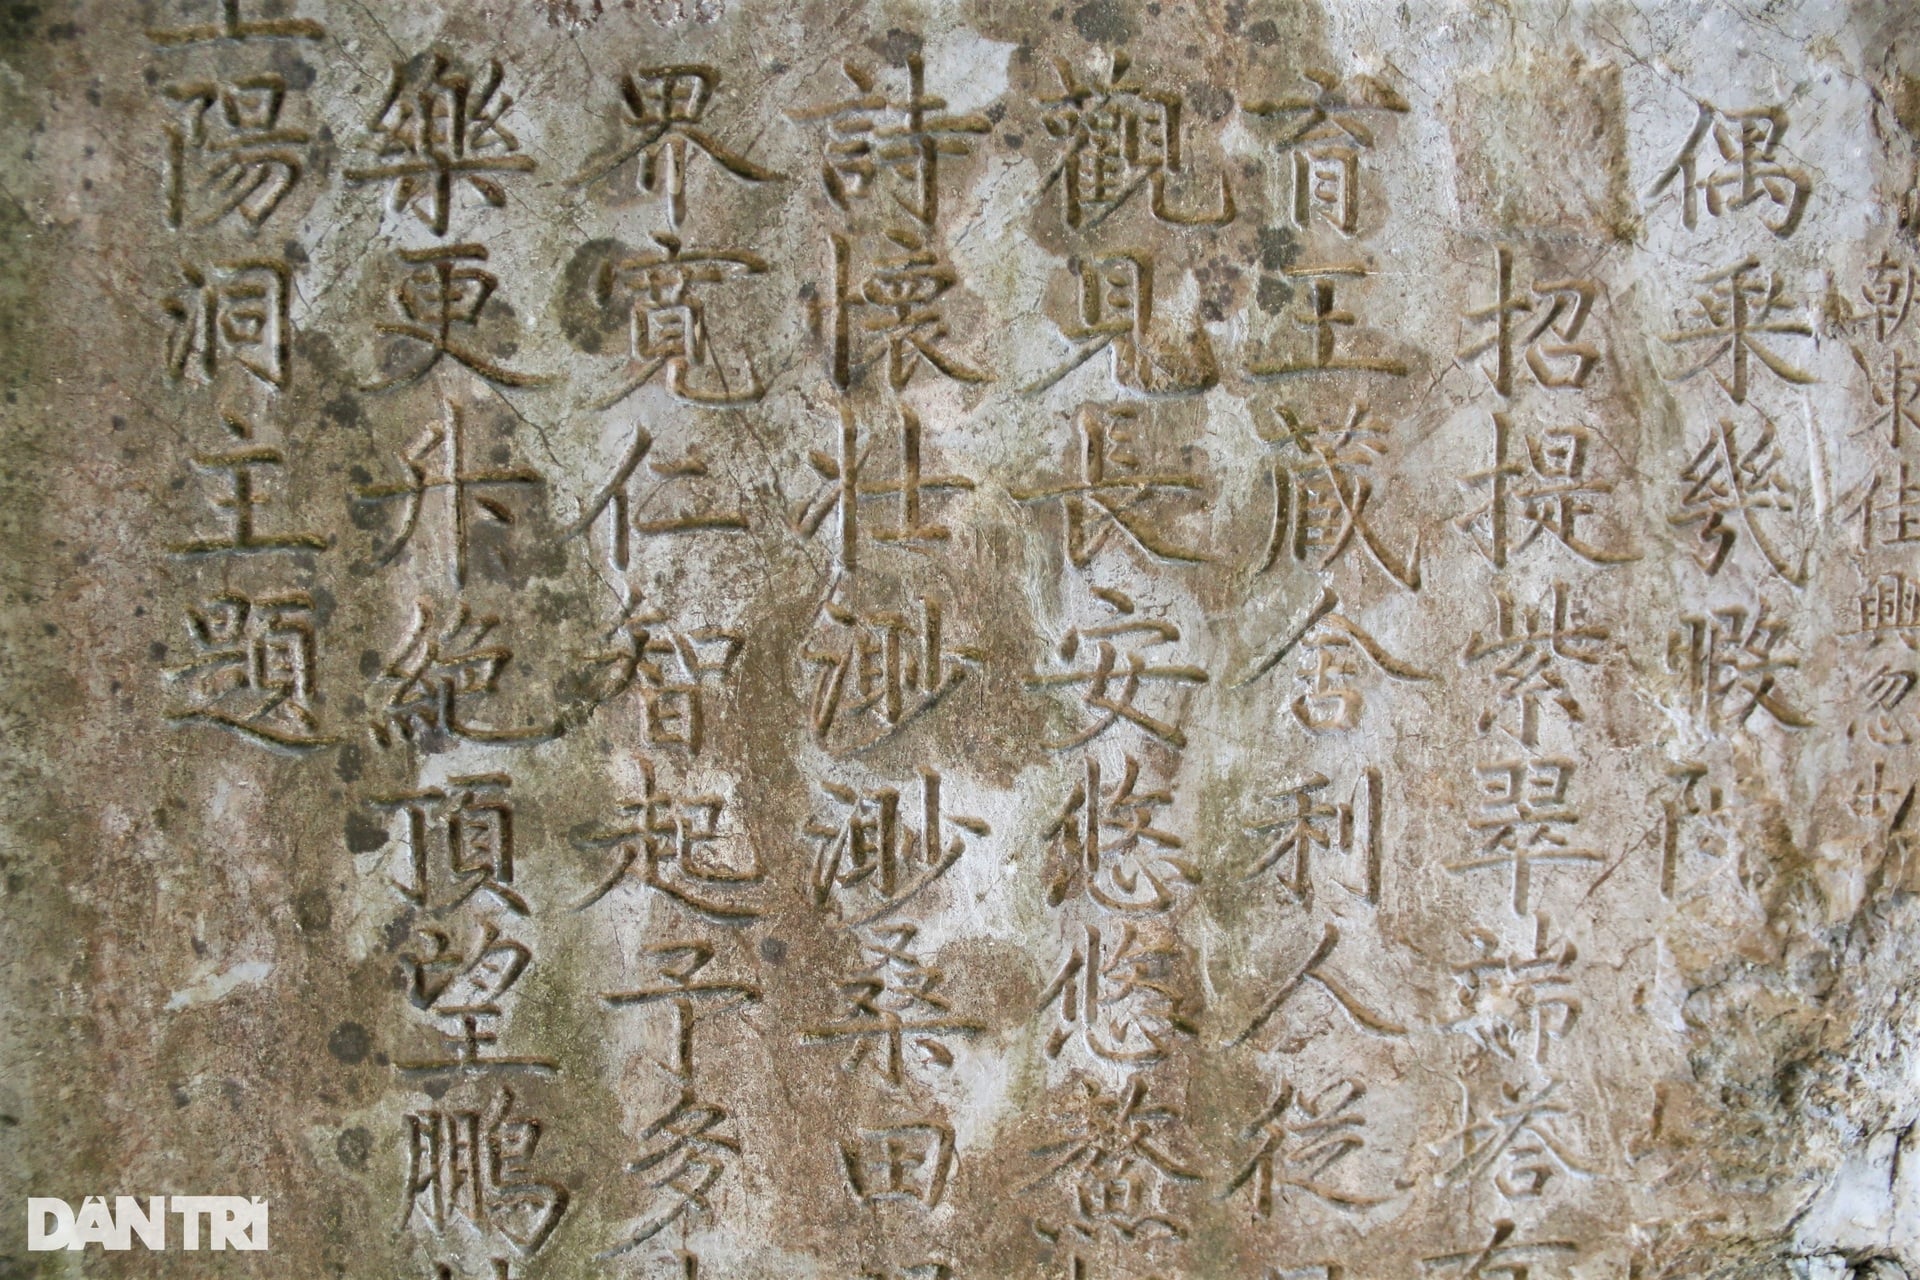 朝東佳興忽
偶乘幾暇
招提紫翠端塔
育王蔵舍利人從
觀見長安悠悠鰲
詩懷壯渺渺桑田
界寬仁智起予多
樂更升絕頂望鵬
上陽洞主題
DÂN TRÍ